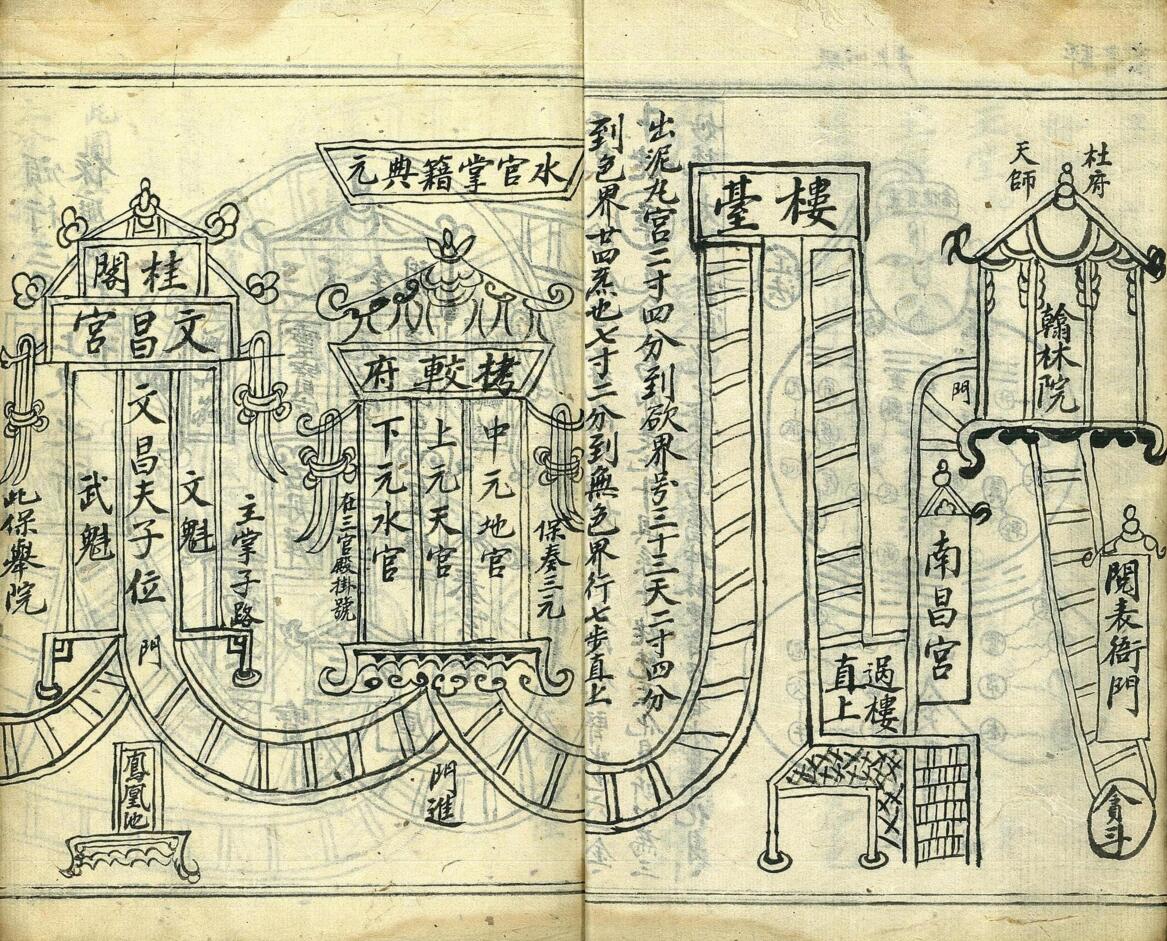 杜府
天師
翰林院
閱表衙門
貪斗
門
南昌宮
樓臺
過樓
直上
出泥丸宮二寸四分到欲界号三十三天二寸四分
到色界廿四炁也七寸二分到無色界行七步直上
水官掌籍典元
栲較府
中元地官
上元天官
下元水官
保奏三元
在三官殿掛號
門進
桂閣
文昌宮
文魁
文昌夫子位
武魁
主掌子路
門
此保舉院
鳳凰池